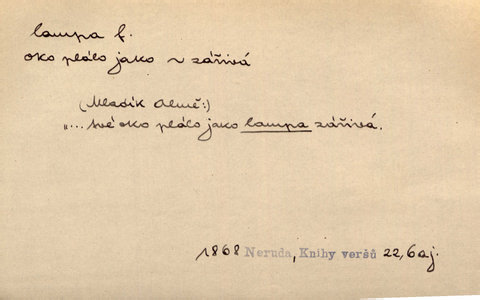 lampa f.
oko plálo jako ~ zářivá
(Mladík Almě:)
"... tvé oko plálo jako lampa zářivá.
1868 Neruda, Knihy veršů 22, 6 aj.